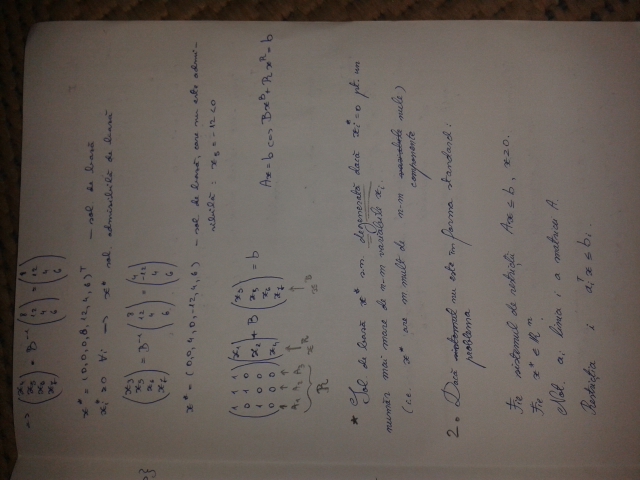 => (x4 x5 x6 x7) = B⁻¹ (8 12 4 6) = (8 12 4 6)
x* = (0,0,0,8,12,4,6)ᵀ – sol. de bază
xi* ≥ 0 ∀i => x* sol. admisibilă de bază
(x3 x5 x6 x7) = B⁻¹ (8 12 4 6) = (4 -12 4 6)
x* = (0,0,4,0,-12,4,6) – sol. de bază, care nu este admi-
sibilă : x5 = -12 < 0
(1 1 1
0 1 0
1 0 0
0 0 0) (x1 x2 x4) + B (x3 x5 x6 x7) = b
Ax = b <=> Bx^B + Rx^R = b
A1 A2 A4 x^R x^B
R
* Sol. de bază x* s.n. degenerată dacă xi* = 0 pt. un
număr mai mare de n-m variabile xi.
(i.e. x* are m mult de n-m variabile nule)
componente
2. Dacă sistemul nu este în forma standard:
problema
Fie sistemul de restricții Ax ≤ b, x ≥ 0.
Fie x* ∈ ℝⁿ.
Not. ai linia i a matricei A.
Restricția i aiᵀx ≤ bi.